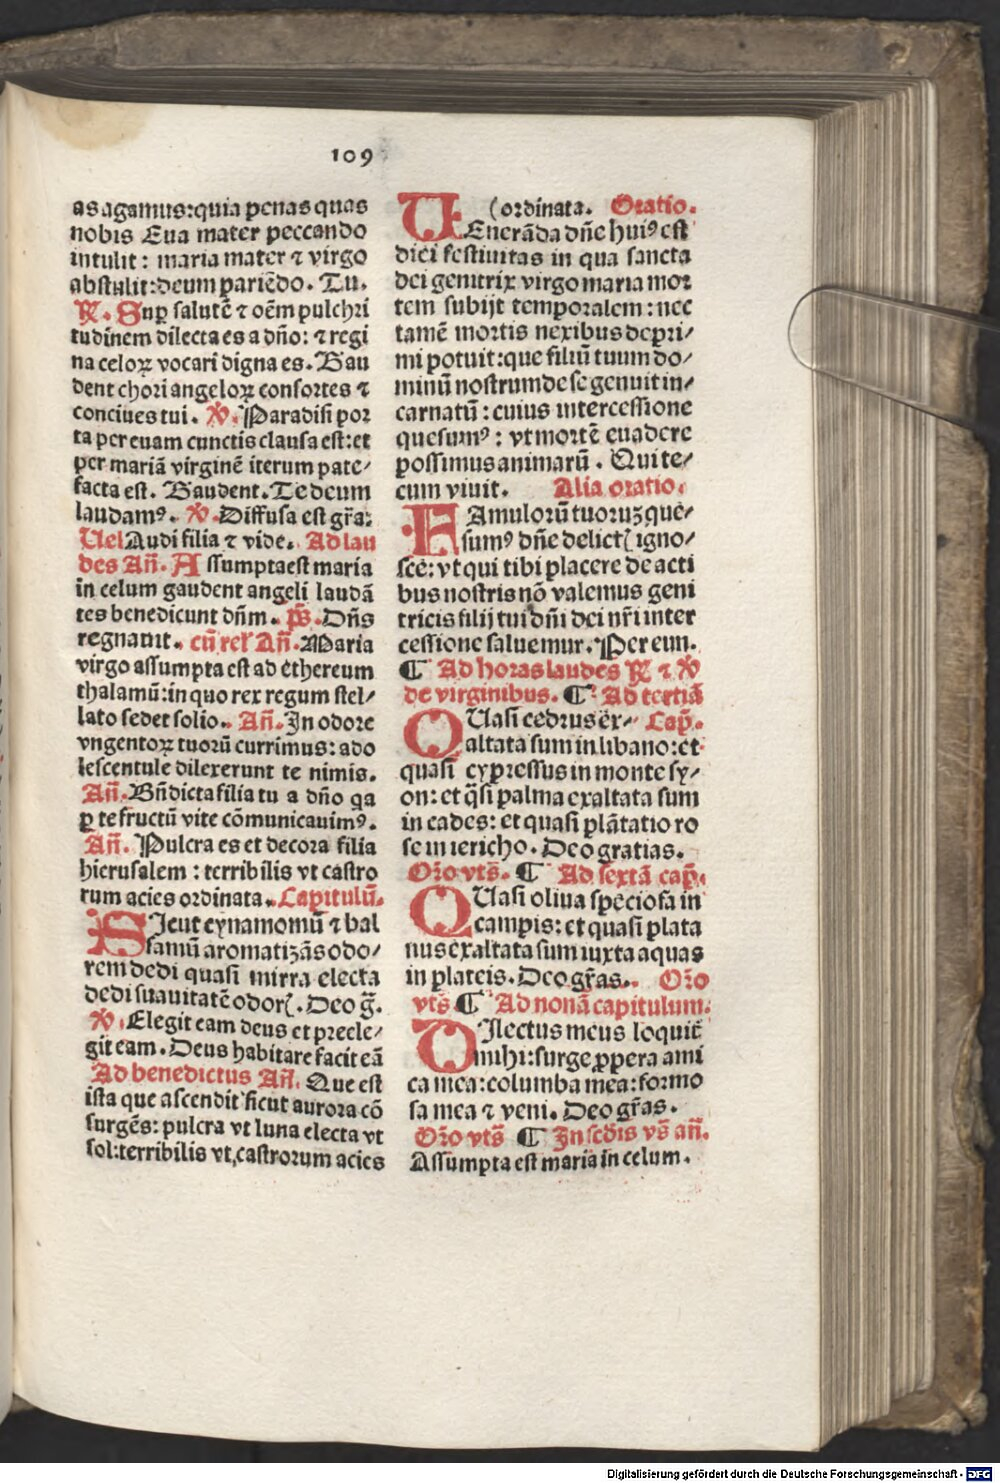 109
as agamus:quia penas quas
nobis Eua mater peccando
intulit: maria mater ⁊ virgo
abstulit:deum pariẽdo. Tu.
℟. Sup salutẽ ⁊ oẽm pulchri
tudinem dilecta es a dño: ⁊ regi
na celoꝝ vocari digna es. Gau
dent chori angeloꝝ consortes ⁊
conciues tui. ℣. Paradisi por
ta per euam cunctis clausa est:et
per mariã virginẽ iterum pate/
facta est. Gaudent. Te deum
laudamꝰ. ℣. Diffusa est gr̃a:
Uel Audi filia ⁊ vide. Ad lau
des Añ. Assumpta est maria
in celum gaudent angeli laudã
tes benedicunt dñm. p̃s. Dñs
regnauit. cũ rel' Añ. Maria
virgo assumpta est ad ethereum
thalamũ:in quo rex regum stel/
lato sedet solio. Añ. In odore
vngentoꝝ tuorũ currimus: ado
lescentule dilexerunt te nimis.
Añ. Bñdicta filia tu a dño qa
ꝑ te fructũ vite cõmunicauimꝰ.
Añ. Pulcra es et decora filia
hierusalem : terribilis vt castro
rum acies ordinata. Capitulũ.
SIcut cynamomũ ⁊ bal
samũ aromatizãs odo/
rem dedi quasi mirra electa
dedi suauitatẽ odorꝭ. Deo g̃.
℣. Elegit eam deus et preele/
git eam. Deus habitare facit eã
Ad benedictus Añ. Que est
ista que ascendit sicut aurora cõ
surgẽs: pulcra vt luna electa vt
sol:terribilis vt castrorum acies
(ordinata. Oratio.
UEnerãda dñe huiꝰ est
diei festiuitas in qua sancta
dei genitrix virgo maria mor
tem subijt temporalem: nec
tamẽ mortis nexibus depri/
mi potuit:que filiũ tuum do/
minũ nostrum de se genuit in/
carnatũ : cuius intercessione
quesumꝰ : vt mortẽ euadere
possimus animarũ. Qui te/
cum viuit. Alia oratio.
FAmulorũ tuorum que/
sumꝰ dñe delictꝭ igno/
sce: vt qui tibi placere de acti
bus nostris nõ valemus geni
tricis filij tui dñi dei nr̃i inter
cessione saluemur. Per eun.
¶ Ad horas laudes ℟ ⁊ ℣
de virginibus. ¶ Ad tertiã
QUasi cedrus ex/ Cap̃.
altata sum in libano: et
quasi cypressus in monte sy/
on: et q̃si palma exaltata sum
in cades: et quasi plãtatio ro
se in iericho. Deo gratias.
Or̃o vts̃. ¶ Ad sextã cap̃.
QUasi oliua speciosa in
campis: et quasi plata
nus exaltata sum iuxta aquas
in plateis. Deo gr̃as. Or̃o
vts̃ ¶ Ad nonã capitulum.
DIlectus meus loquit̃
mihi:surge ꝓpera ami
ca mea:columba mea:formo
sa mea ⁊ veni. Deo gr̃as.
Or̃o vts̃ ¶ In scd̃is vs̃ añ.
Assumpta est maria in celum.
Digitalisierung gefördert durch die Deutsche Forschungsgemeinschaft - DFG